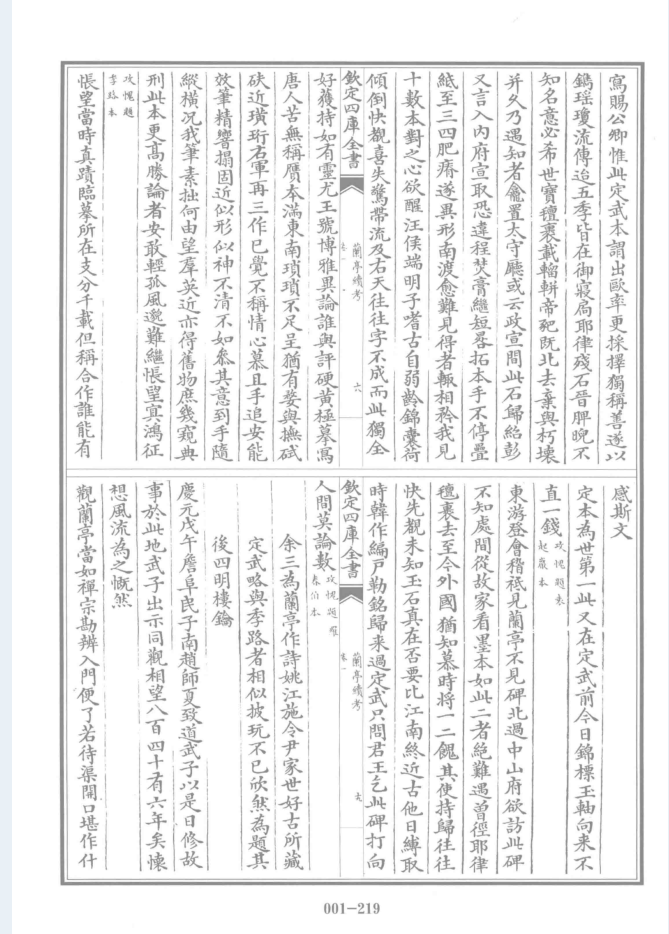 寫賜公卿惟此定武本謂出歐率更採擇獨稱善遂以
鐫瑶瓊流傳迨五季皆在御寢扃耶律殘石晉睥睨不
知名意必希世寶氊裹載輜輧帝羓既北去棄與朽壊
并久乃遇知者龕置太守廳或云政宣間此石歸紹彭
又言入内府宣取恐違程焚膏繼短晷拓本手不停疊
紙至三四肥瘠遂異形南渡愈難見得者輙相矜我見
十數本對之心欲醒汪侯端明子嗜古自弱齡錦囊荷
傾倒快覩喜失驚帶流及右天往往字不成而此獨全
欽定四庫全書
蘭亭續考
卷一
六
好獲持如有靈尤王號博雅異論誰與評硬黄極摹寫
唐人苦無稱贋本滿東南瑣瑣不足呈猶有婺與撫碔
砆近璜珩右軍再三作已覺不稱情心慕且手追安能
效筆精響搨固近似形似神不清不如參其意到手隨
縱横况我筆素拙何由望羣英近亦得舊物庶幾窺典
刑此本更髙勝論者安敢輕孤風邈難繼悵望㝠鴻征
攻愧題
李路本
悵望當時真蹟臨摹所在支分千載但稱合作誰能有
感斯文
定本為世第一此又在定武前今日錦標玉軸向来不
直一錢
攻愧題
趙嚴本
東游登會稽祗見蘭亭不見碑北過中山府欲訪此碑
不知處間從故家看墨本如此二者絶難遇曽徑耶律
氊裹去至今外國猶知慕時將一二餽其使持歸往往
快先覩未知玉石真在否要比江南終近古他日縛取
時韓作編戸勒銘歸来過定武只問君王乞此碑打向
欽定四庫全書
蘭亭續考
卷一
人間莫論數
攻愧題
本
余三為蘭亭作詩姚江施令尹家世好古所藏
定武略與李路者相似披玩不已欣然為題其
後四明樓鑰
慶元戊午詹阜民子南趙師夏致道武子以是日修故
事於此地武子出示同觀相望八百四十有六年矣懐
想風流為之慨然
觀蘭亭當如禪宗勘辨入門便了若待渠開口堪作什
001-219